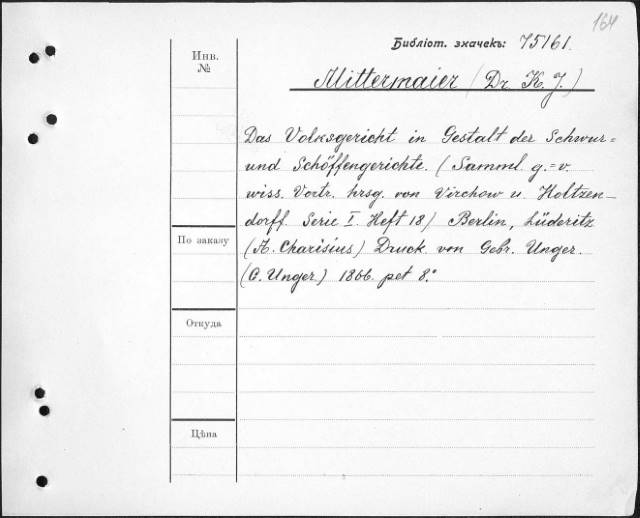 164
Библіот. значекъ: 75161.
Инв.
№
Mittermaier (Dr. K. J.)
Das Volksgericht in Gestalt der Schwur=
und Schöffengerichte. (Samml. g.=v.
wiss. Vortr. hrsg. von Virchow u. Holtzen-
dorff. Serie I. Heft 18) Berlin, Lüderitz
По заказу
(A. Charisius) Druck von Gebr. Unger.
(C. Unger.) 1866. pet 8.°
Откуда
Цѣна